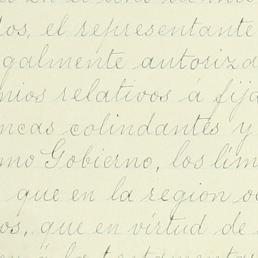 dos, el representante
galmente autorizad
mios relativos á fija
ncas colindantes y
mo Gobierno, los lim
que en la region oc
os, que en virtud de